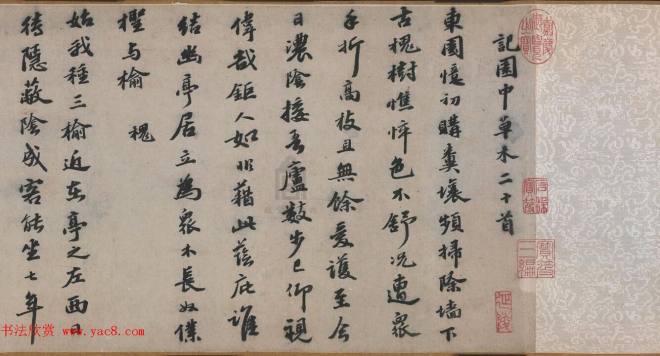 記園中草木二十首
東園憶初購糞壤頻掃除墻下
古槐樹憔悴色不舒況遭眾
手折高枝且無餘愛護至今
日濃陰接吾廬數步已仰視
偉哉鉅人如非藉此蔭庇誰
結幽亭居立為眾木長奴僕
檉与榆 槐
始我種三榆近在亭之左西日
待隱蔽陰成客能坐七年
寶笈三編
延陵
书法欣赏 www.yac8.com